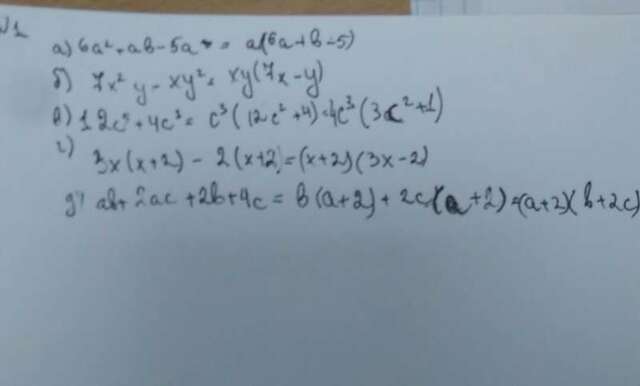 №1
а) 6a² + ab - 5a = a(6a+b-5)
б) 7x²y - xy² = xy(7x-y)
в) 12c⁵ + 4c³ = c³(12c²+4) = 4c³(3c²+1)
г) 3x(x+2) - 2(x+2) = (x+2)(3x-2)
д) ab + 2ac + 2b + 4c = b(a+2) + 2c(a+2) = (a+2)(b+2c)